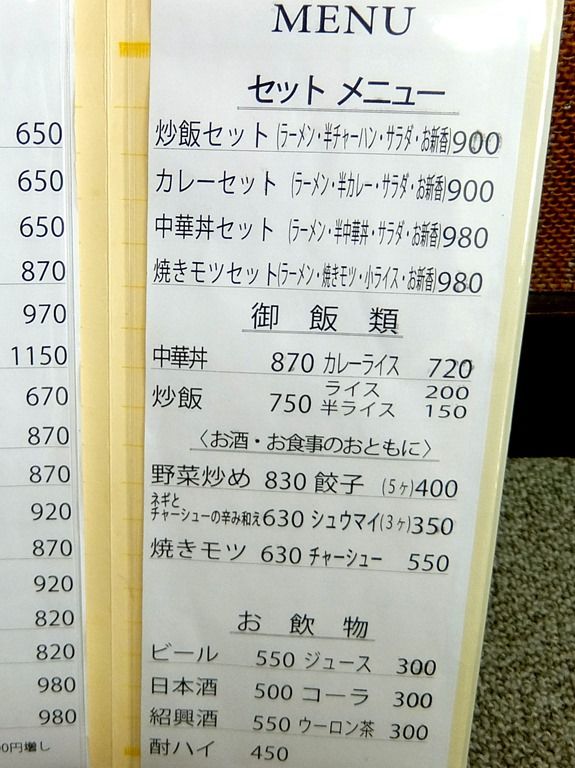 650
650
650
870
970
1150
670
870
870
920
870
920
820
820
980
980
0円増し
MENU
セット メニュー
炒飯セット (ラーメン・半チャーハン・サラダ・お新香) 900
カレーセット (ラーメン・半カレー・サラダ・お新香) 900
中華丼セット (ラーメン・半中華丼・サラダ・お新香) 980
焼きモツセット (ラーメン・焼きモツ・小ライス・お新香) 980
御飯類
中華丼 870 カレーライス 720
ライス 200
炒飯 750 半ライス 150
〈お酒・お食事のおともに〉
野菜炒め 830 餃子 (5ヶ) 400
ネギと
チャーシューの辛み和え 630 シュウマイ (3ヶ) 350
焼きモツ 630 チャーシュー 550
お飲物
ビール 550 ジュース 300
日本酒 500 コーラ 300
紹興酒 550 ウーロン茶 300
酎ハイ 450